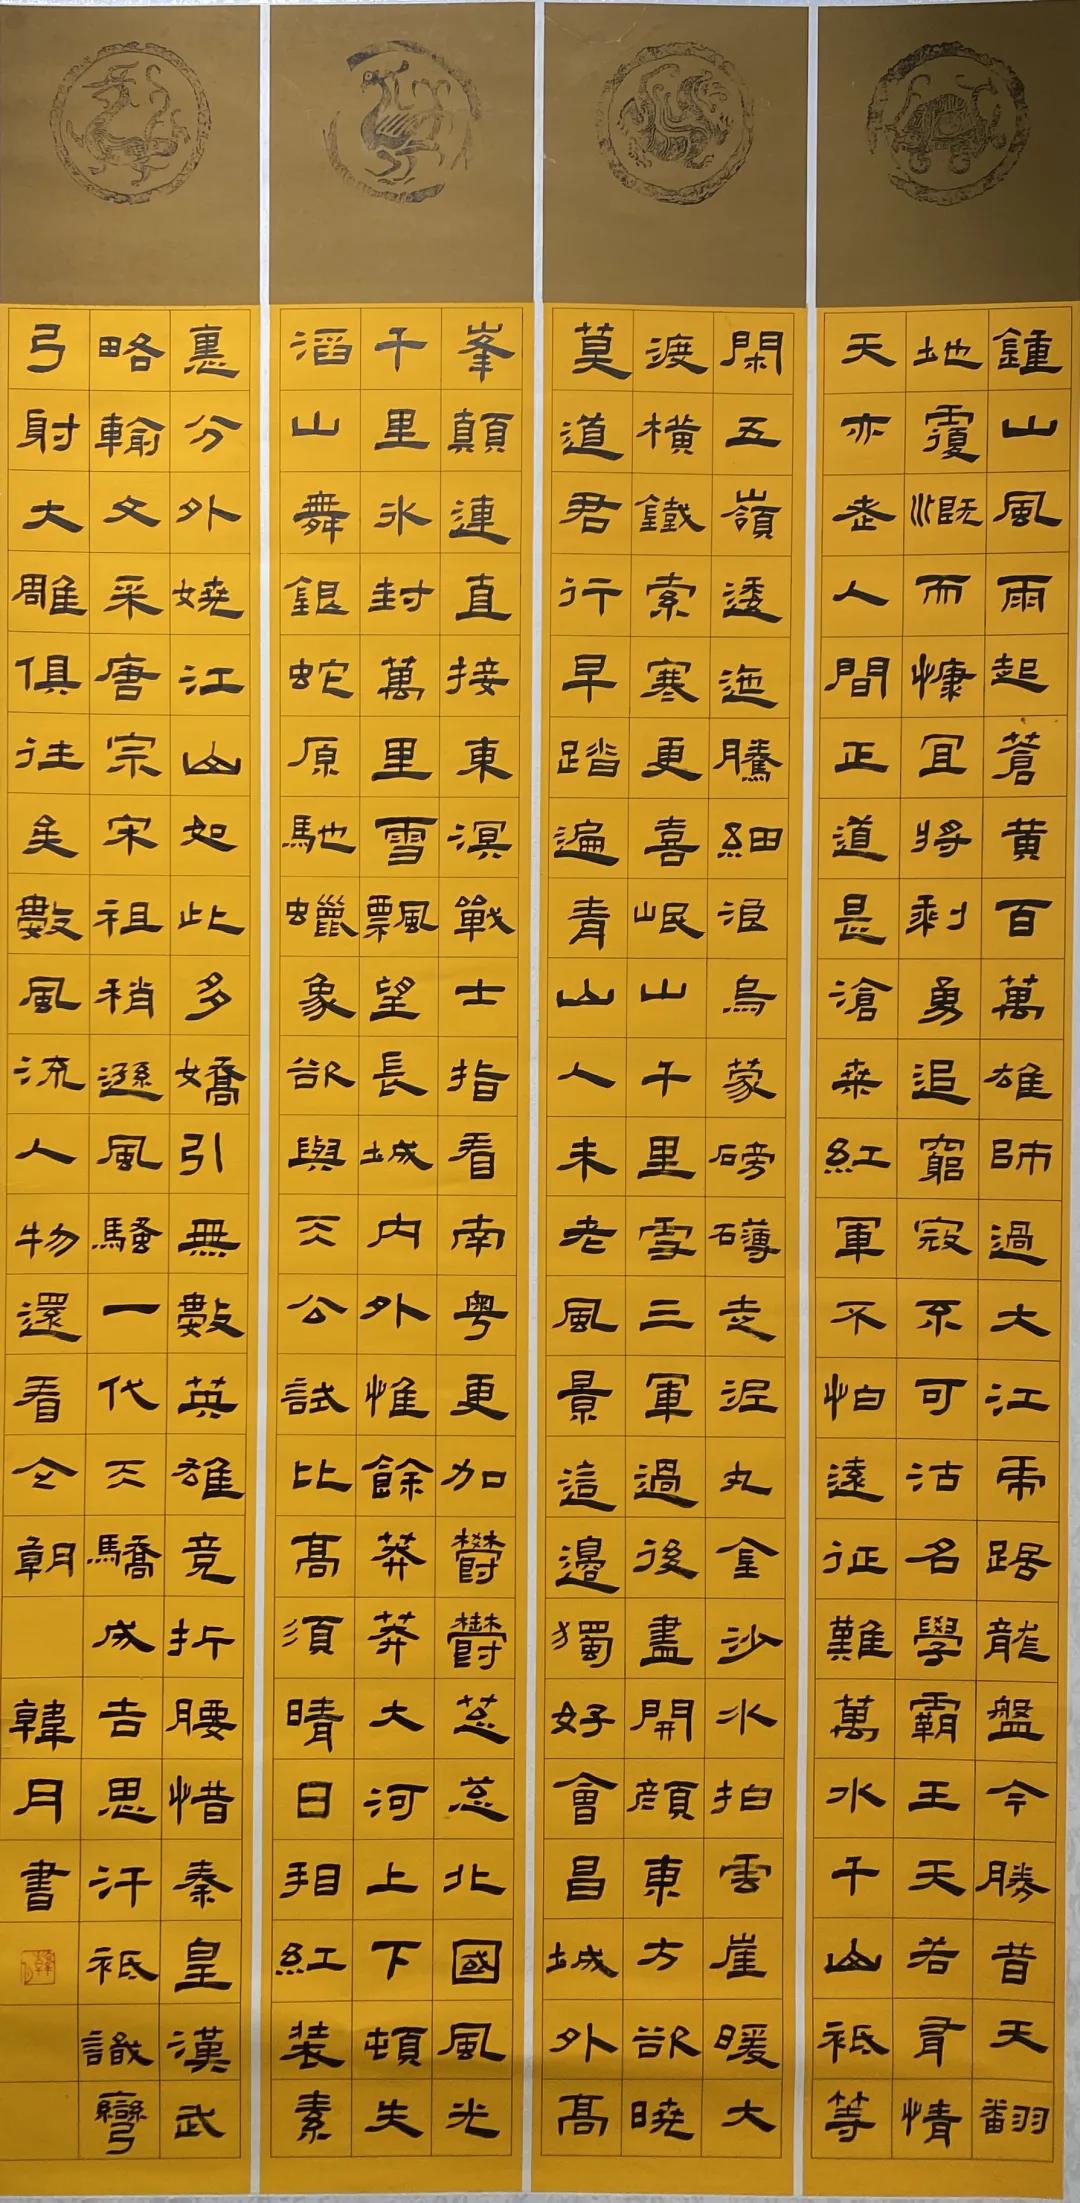 鍾山風雨起蒼黃百萬雄師過大江虎踞龍盤今勝昔天翻
地覆慨而慷宜將剩勇追窮寇不可沽名學霸王天若有情
天亦老人間正道是滄桒紅軍不怕遠征難萬水千山祇等
閑五嶺逶迤騰細浪烏蒙磅礴走泥丸金沙水拍雲崖暖大
渡橫鐵索寒更喜岷山千里雪三軍過後盡開顏東方欲曉
莫道君行早踏遍青山人未老風景這邊獨好會昌城外高
峯顛連直接東溟戰士指看南粵更加鬱鬱葱葱北國風光
千里冰封萬里雪飄望長城內外惟餘莽莽大河上下頓失
滔山舞銀蛇原馳蠟象欲與天公試比高須晴日看紅裝素
裹分外嬈江山如此多嬌引無數英雄竞折腰惜秦皇漢武
略輸文采唐宗宋祖稍遜風騷一代天驕成吉思汗祇識彎
弓射大雕俱往矣數風流人物還看今朝
韓月書